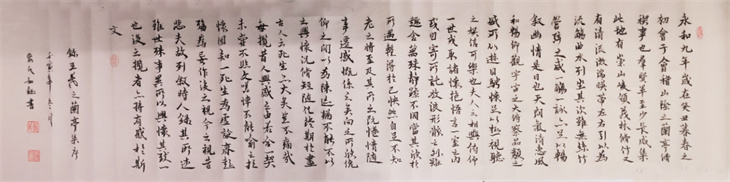 永和九年歲在癸丑暮春之
初會于會稽山陰之蘭亭脩
禊事也羣賢畢至少長咸集
此地有崇山峻領茂林脩竹又
有清流激湍暎帶左右引以為
流觴曲水列坐其次雖無絲竹
管絃之盛一觴一詠亦足以暢
敘幽情是日也天朗氣清惠風
和暢仰觀宇宙之大俯察品類之
盛所以遊目騁懷足以極視聽
之娛信可樂也夫人之相與俯仰
一世或取諸懷抱悟言一室之內
或因寄所託放浪形骸之外雖
趣舍萬殊靜躁不同當其欣於
所遇暫得於己怏然自足不知
老之將至及其所之既倦情隨
事遷感慨係之矣向之所欣俛
仰之間以為陳迹猶不能不以
之興懷況脩短隨化終期於盡
古人云死生亦大矣豈不痛哉
每攬昔人興感之由若合一契
未嘗不臨文嗟悼不能喻之於
懷固知一死生為虛誕齊彭
殤為妄作後之視今之視昔
悲夫故列敘時人錄其所述
雖世殊事異所以興懷其致一
也後之攬者亦將有感於斯
文
錄王羲之蘭亭集序